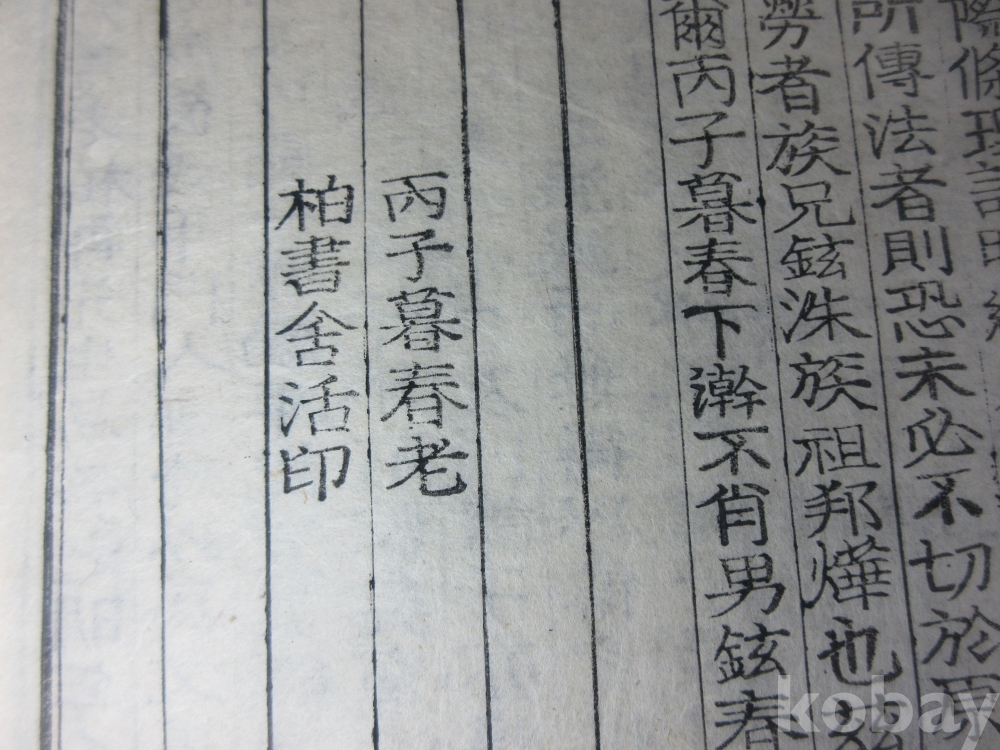 際條理
所傳法者則恐未必不切於
勞者族兄鉉洙族祖邦燁也玆
爾丙子暮春下澣不肖男鉉春
丙子暮春老
柏書舍活印
kobay